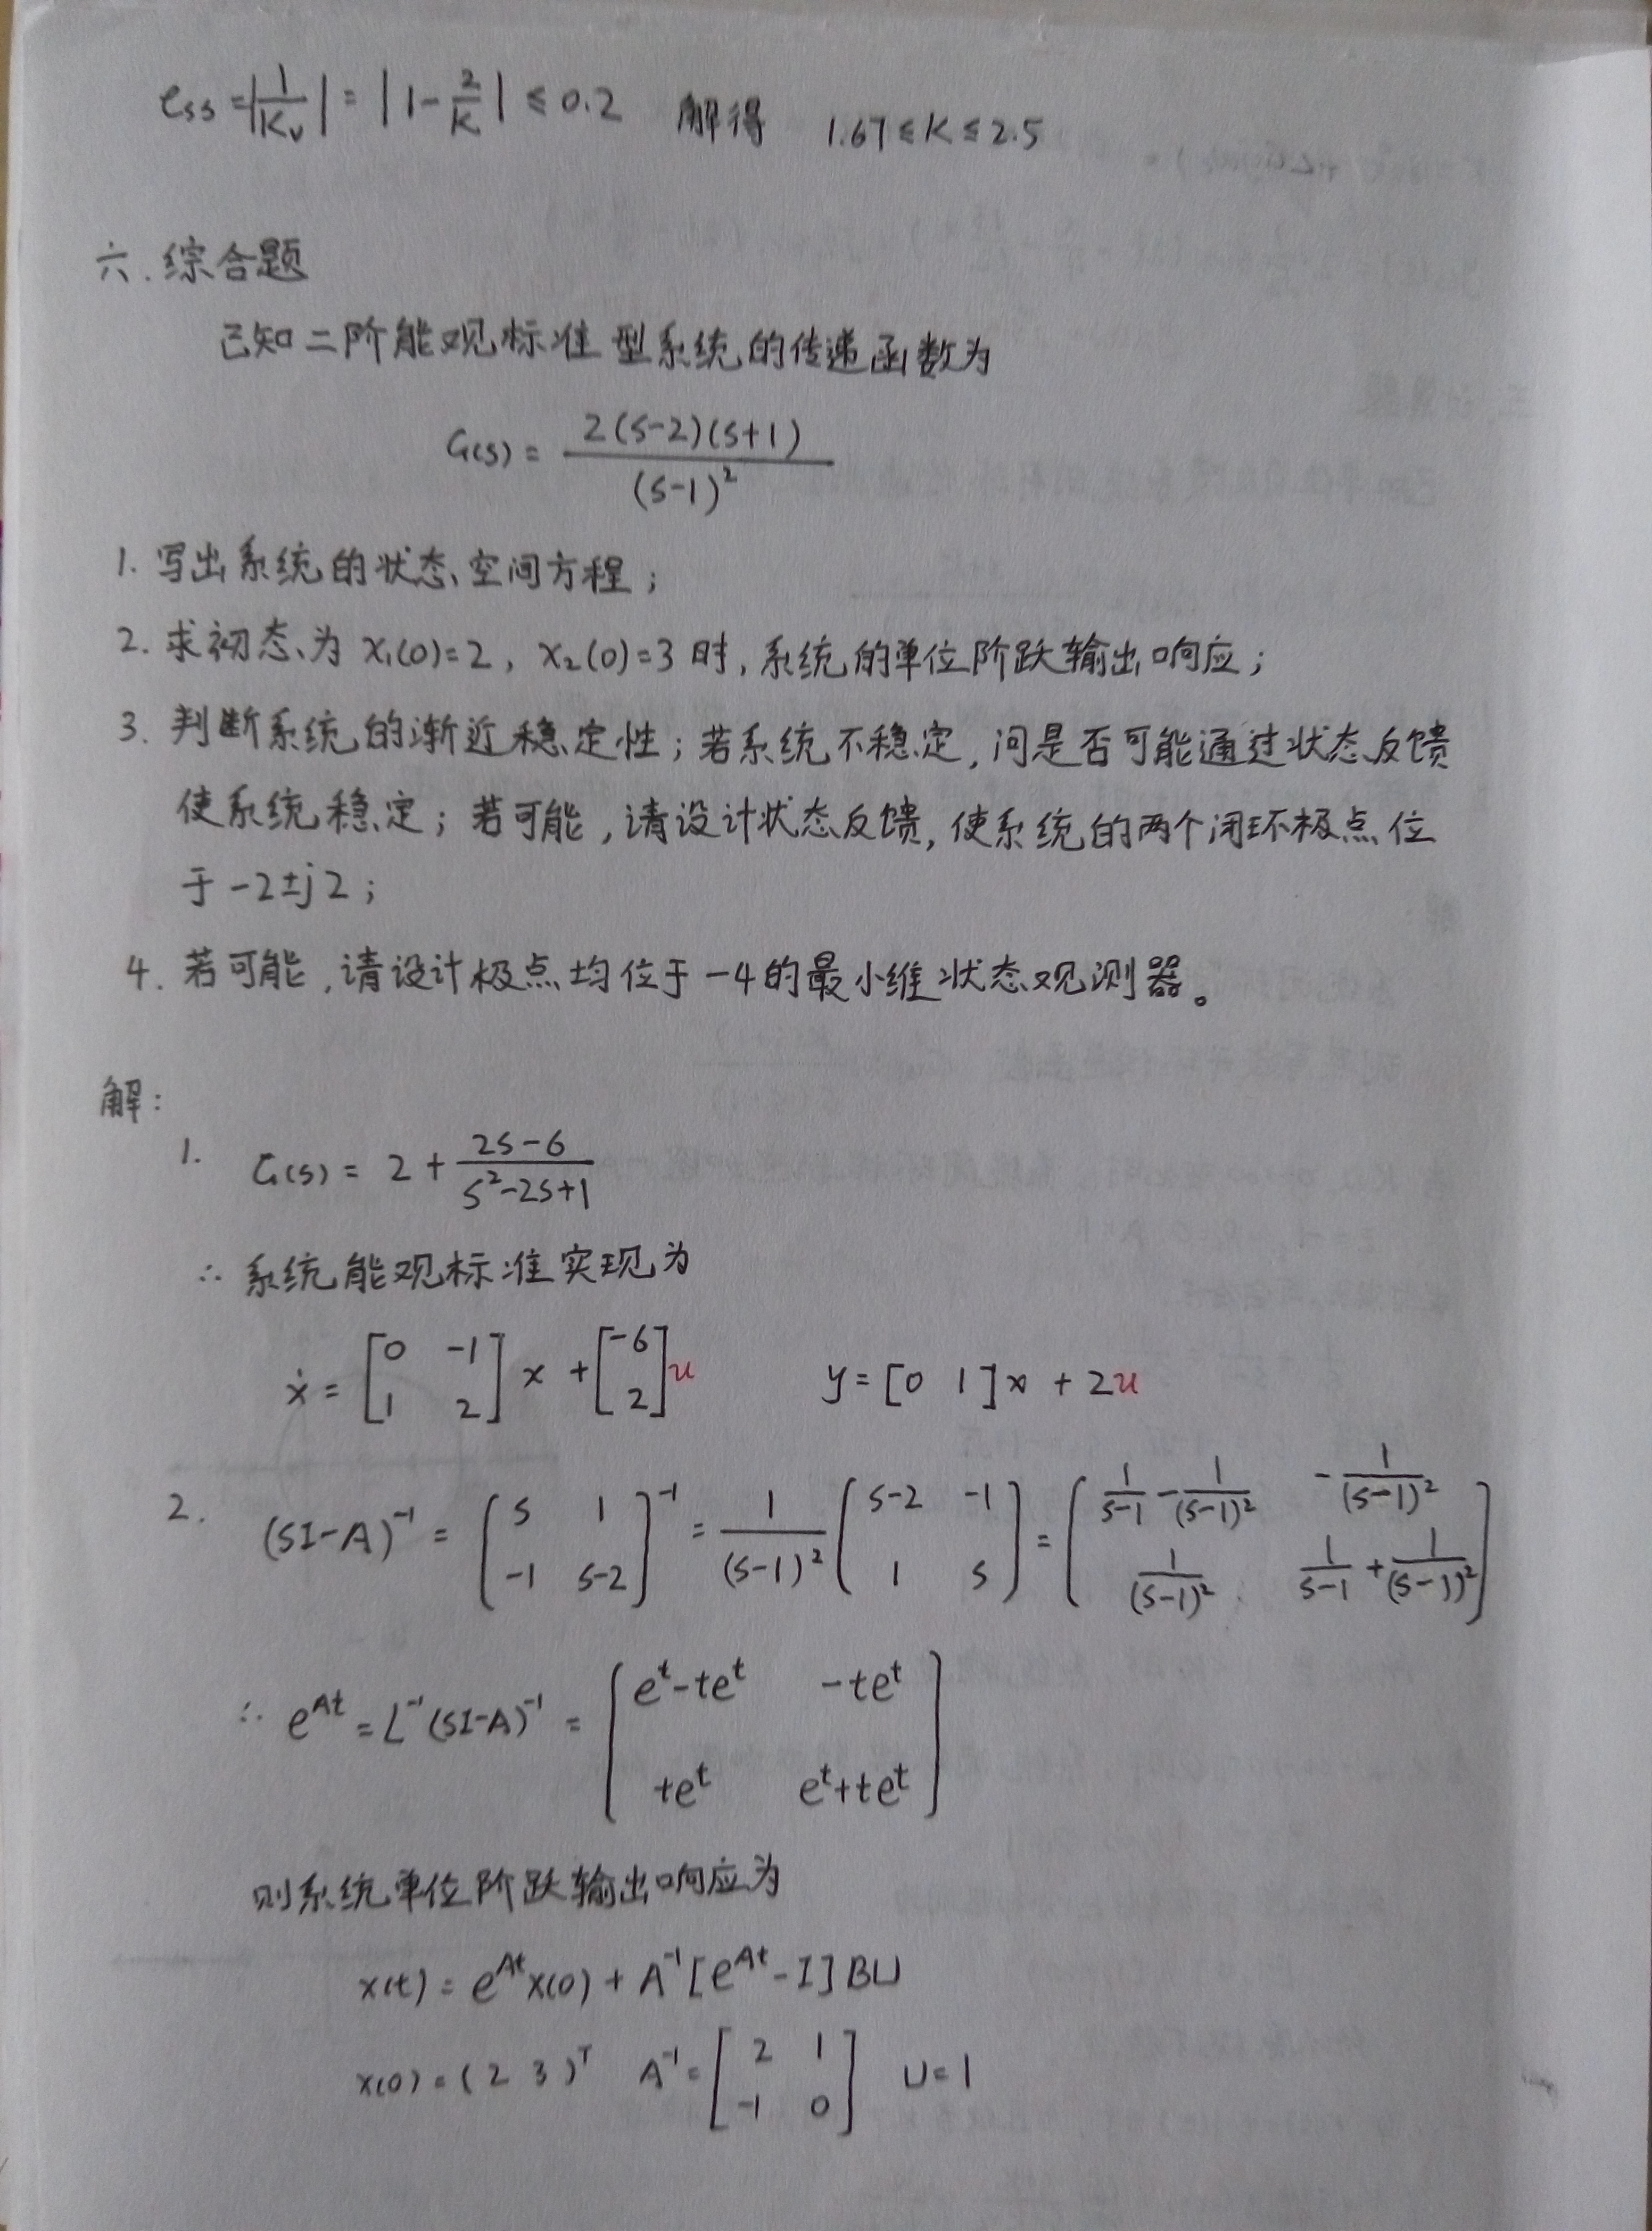 ess = |1/Kv| = |1 - 2/K| ≤ 0.2 解得 1.67 ≤ K ≤ 2.5
六. 综合题
已知二阶能观标准型系统的传递函数为
G(s) = 2(s-2)(s+1) / (s-1)²
1. 写出系统的状态空间方程;
2. 求初态为 x₁(0)=2, x₂(0)=3 时, 系统的单位阶跃输出响应;
3. 判断系统的渐近稳定性; 若系统不稳定, 问是否可能通过状态反馈
使系统稳定; 若可能, 请设计状态反馈, 使系统的两个闭环极点位
于 -2±j2;
4. 若可能, 请设计极点均位于 -4 的最小维状态观测器。
解:
1. G(s) = 2 + (2s-6)/(s²-2s+1)
∴ 系统能观标准实现为
ẋ = [0 -1; 1 2] x + [-6; 2] u y = [0 1] x + 2u
2. (sI-A)⁻¹ = [s 1; -1 s-2]⁻¹ = 1/(s-1)² [s-2 -1; 1 s] = [1/(s-1) - 1/(s-1)² -1/(s-1)²; 1/(s-1)² 1/(s-1) + 1/(s-1)²]
∴ e^{At} = L⁻¹(sI-A)⁻¹ = [e^t - te^t -te^t; te^t e^t + te^t]
则系统单位阶跃输出响应为
x(t) = e^{At} x(0) + A⁻¹ [e^{At} - I] BU
x(0) = (2 3)^T A⁻¹ = [2 1; -1 0] U = 1